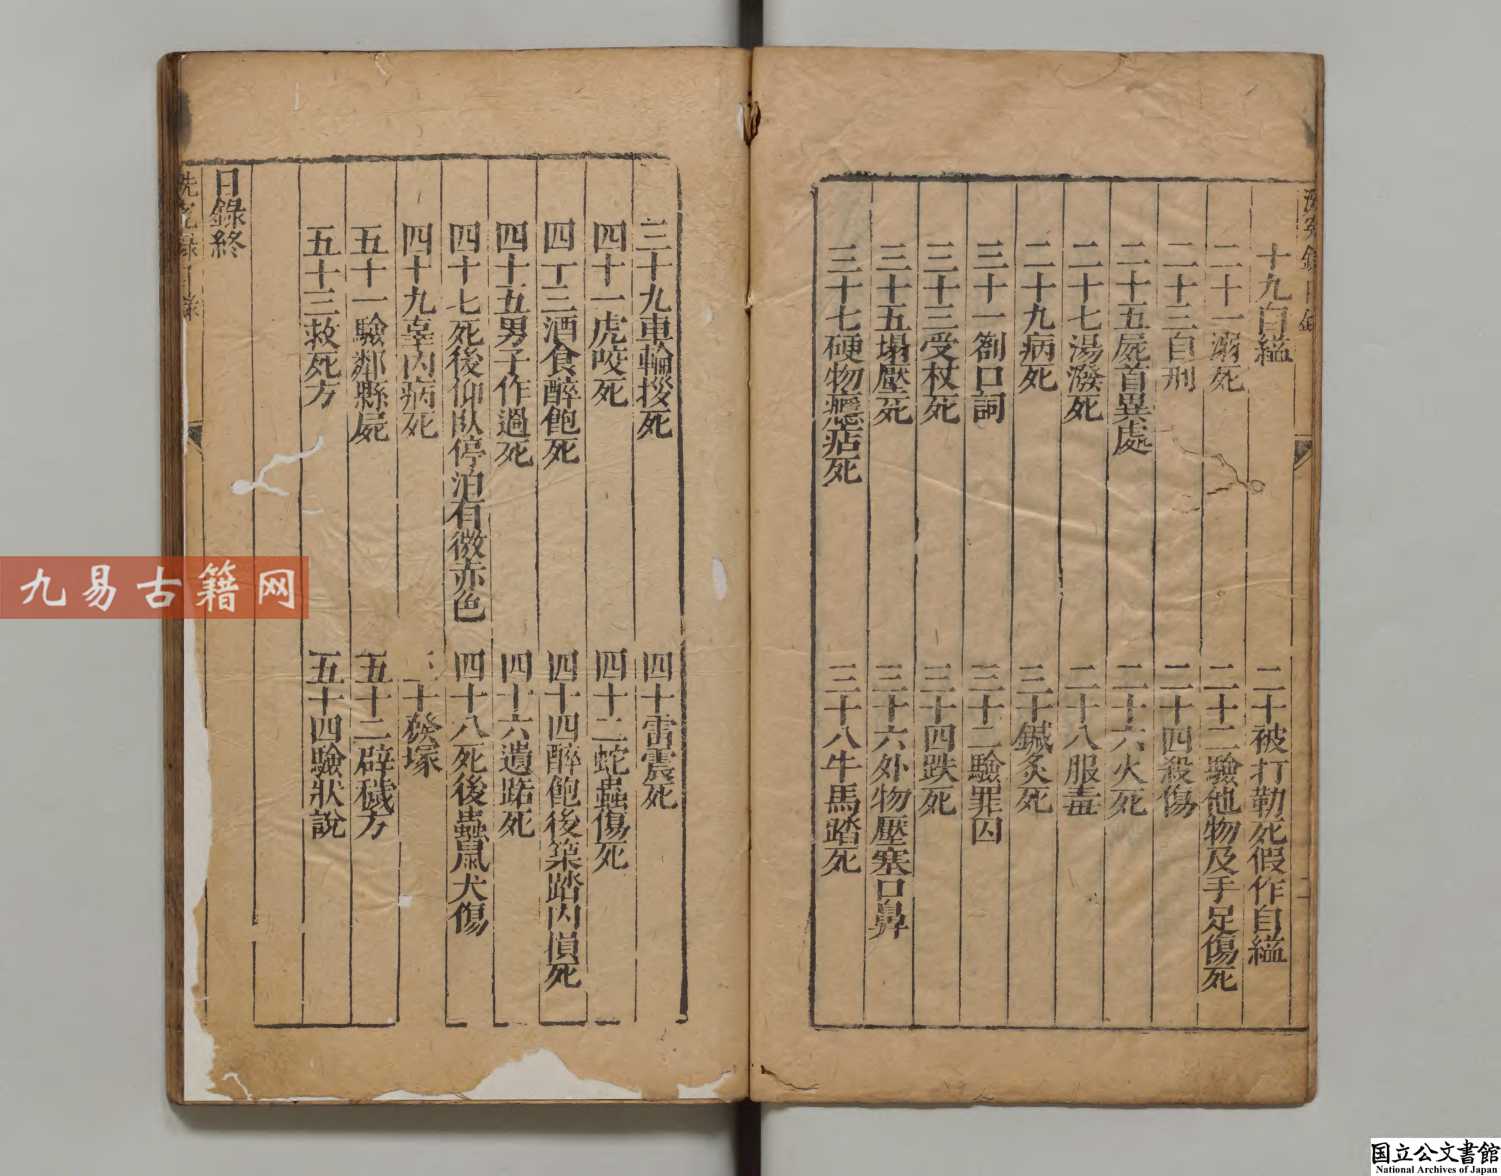 十九自縊
二十被打勒死假作自縊
二十一溺死
二十二驗他物及手足傷死
二十三自刑
二十四殺傷
二十五屍首異處
二十六火死
二十七湯潑死
二十八服毒
二十九病死
三十鍼灸死
三十一劄口詞
三十二驗罪囚
三十三受杖死
三十四跌死
三十五塌壓死
三十六外物壓塞口鼻
三十七硬物癮痁死
三十八牛馬踏死
三十九車輪拶死
四十雷震死
四十一虎咬死
四十二蛇蟲傷死
四十三酒食醉飽死
四十四醉飽後築踏內損死
四十五男子作過死
四十六遺路死
四十七死後仰臥停泊有微赤色
四十八死後蟲鼠犬傷
四十九辜內病死
十發塚
五十一驗鄰縣屍
五十二辟穢方
五十三救死方
五十四驗狀說
目錄終
九易古籍网
国立公文書館
National Archives of Japan